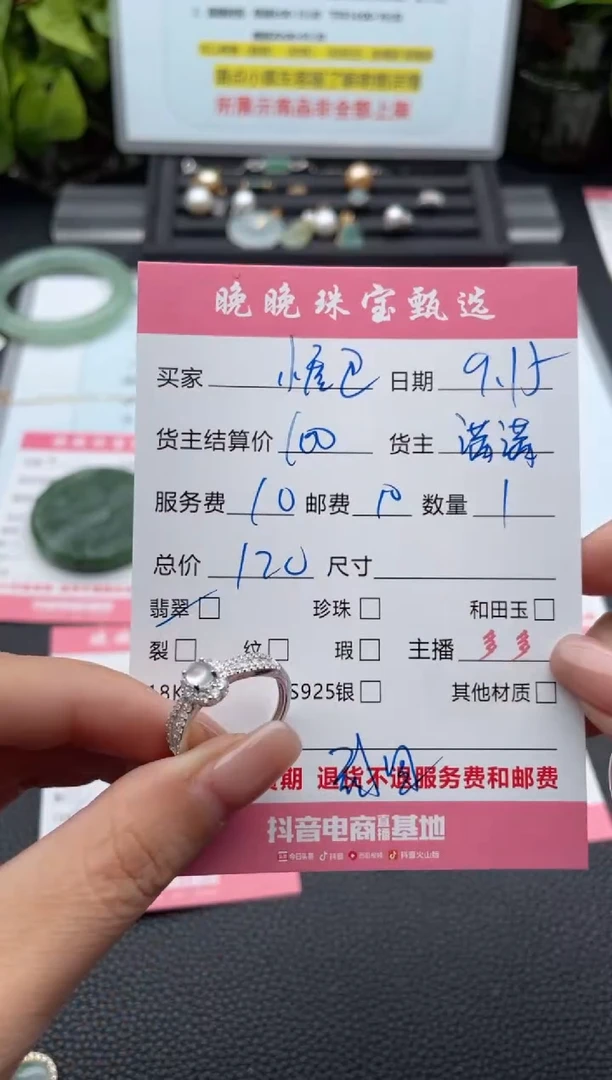 所展示商品非全部上架
晚晚珠宝甄选
买家 日期 9.15
货主结算价 100 货主 满满
服务费 10 邮费 10 数量 1
总价 120 尺寸
翡翠 珍珠 和田玉
裂 纹 瑕 主播 多多
18K S925银 其他材质
期 退货不退服务费和邮费
抖音电商直播基地
今日头条 抖音 西瓜视频 抖音火山版